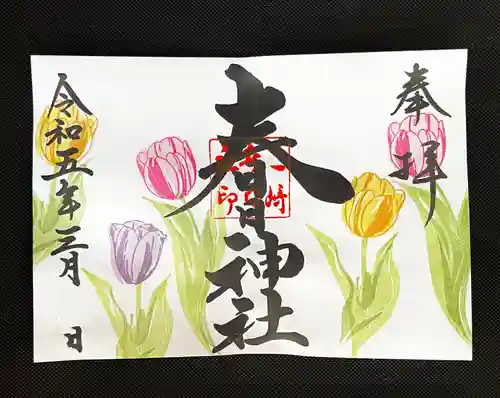 奉拝
春日神社
令和五年三月 日